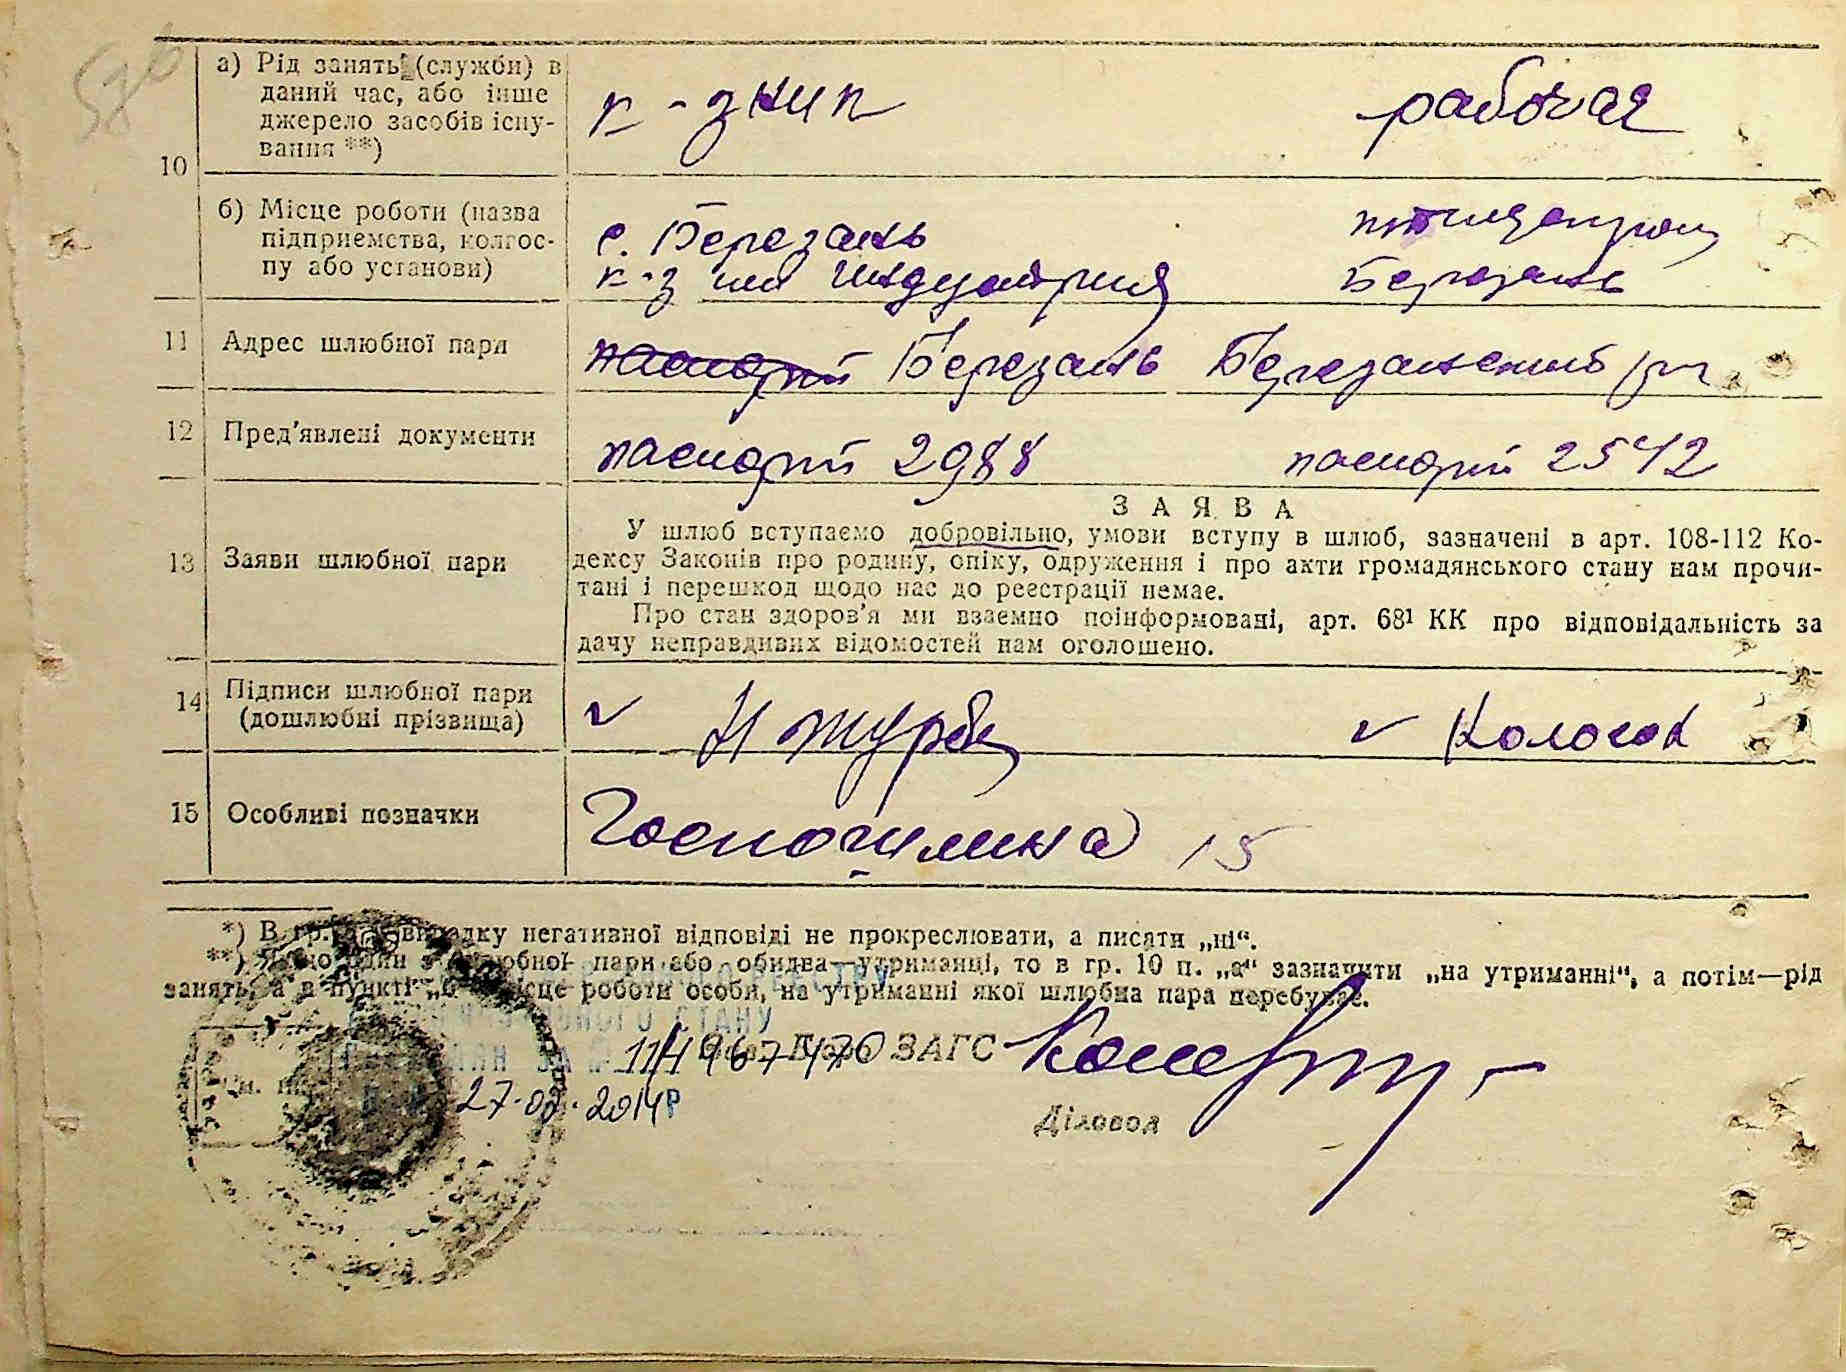 10
а) Рід занять (служби) в
даний час, або інше
джерело засобів існу-
вання **)
к-зник
рабочая
б) Місце роботи (назва
підприемства, колгос-
пу або установи)
с. Березань
к-з им Индустрия
Березань
11 Адрес шлюбної пари
паспорт Березань Березанский
12 Пред'явлені документи
паспорт 2988
паспорт 2542
13 Заяви шлюбної пари
ЗАЯВА
У шлюб вступаємо добровільно, умови вступу в шлюб, зазначені в арт. 108-112 Ко-
дексу Законів про родину, опіку, одруження і про акти громадянського стану нам прочи-
тані і перешкод щодо нас до реєстрації немає.
Про стан здоров'я ми взаємно поінформовані, арт. 68¹ КК про відповідальність за
дачу неправдивих відомостей нам оголошено.
14 Підписи шлюбної пари
(дошлюбні прізвища)
15 Особливі позначки
15
*) В гр. випадку негативної відповіді не прокреслювати, а писати „ні“.
**) Якщо один з шлюбної пари або обидва—утриманці, то в гр. 10 п. „а“ зазначити „на утриманні“, а потім—рід
занять, а в пункті „б“ місце роботи особи, на утриманні якої шлюбна пара перебуває.
СТАНУ
ЗАГС
27.02.2014р
Діловод